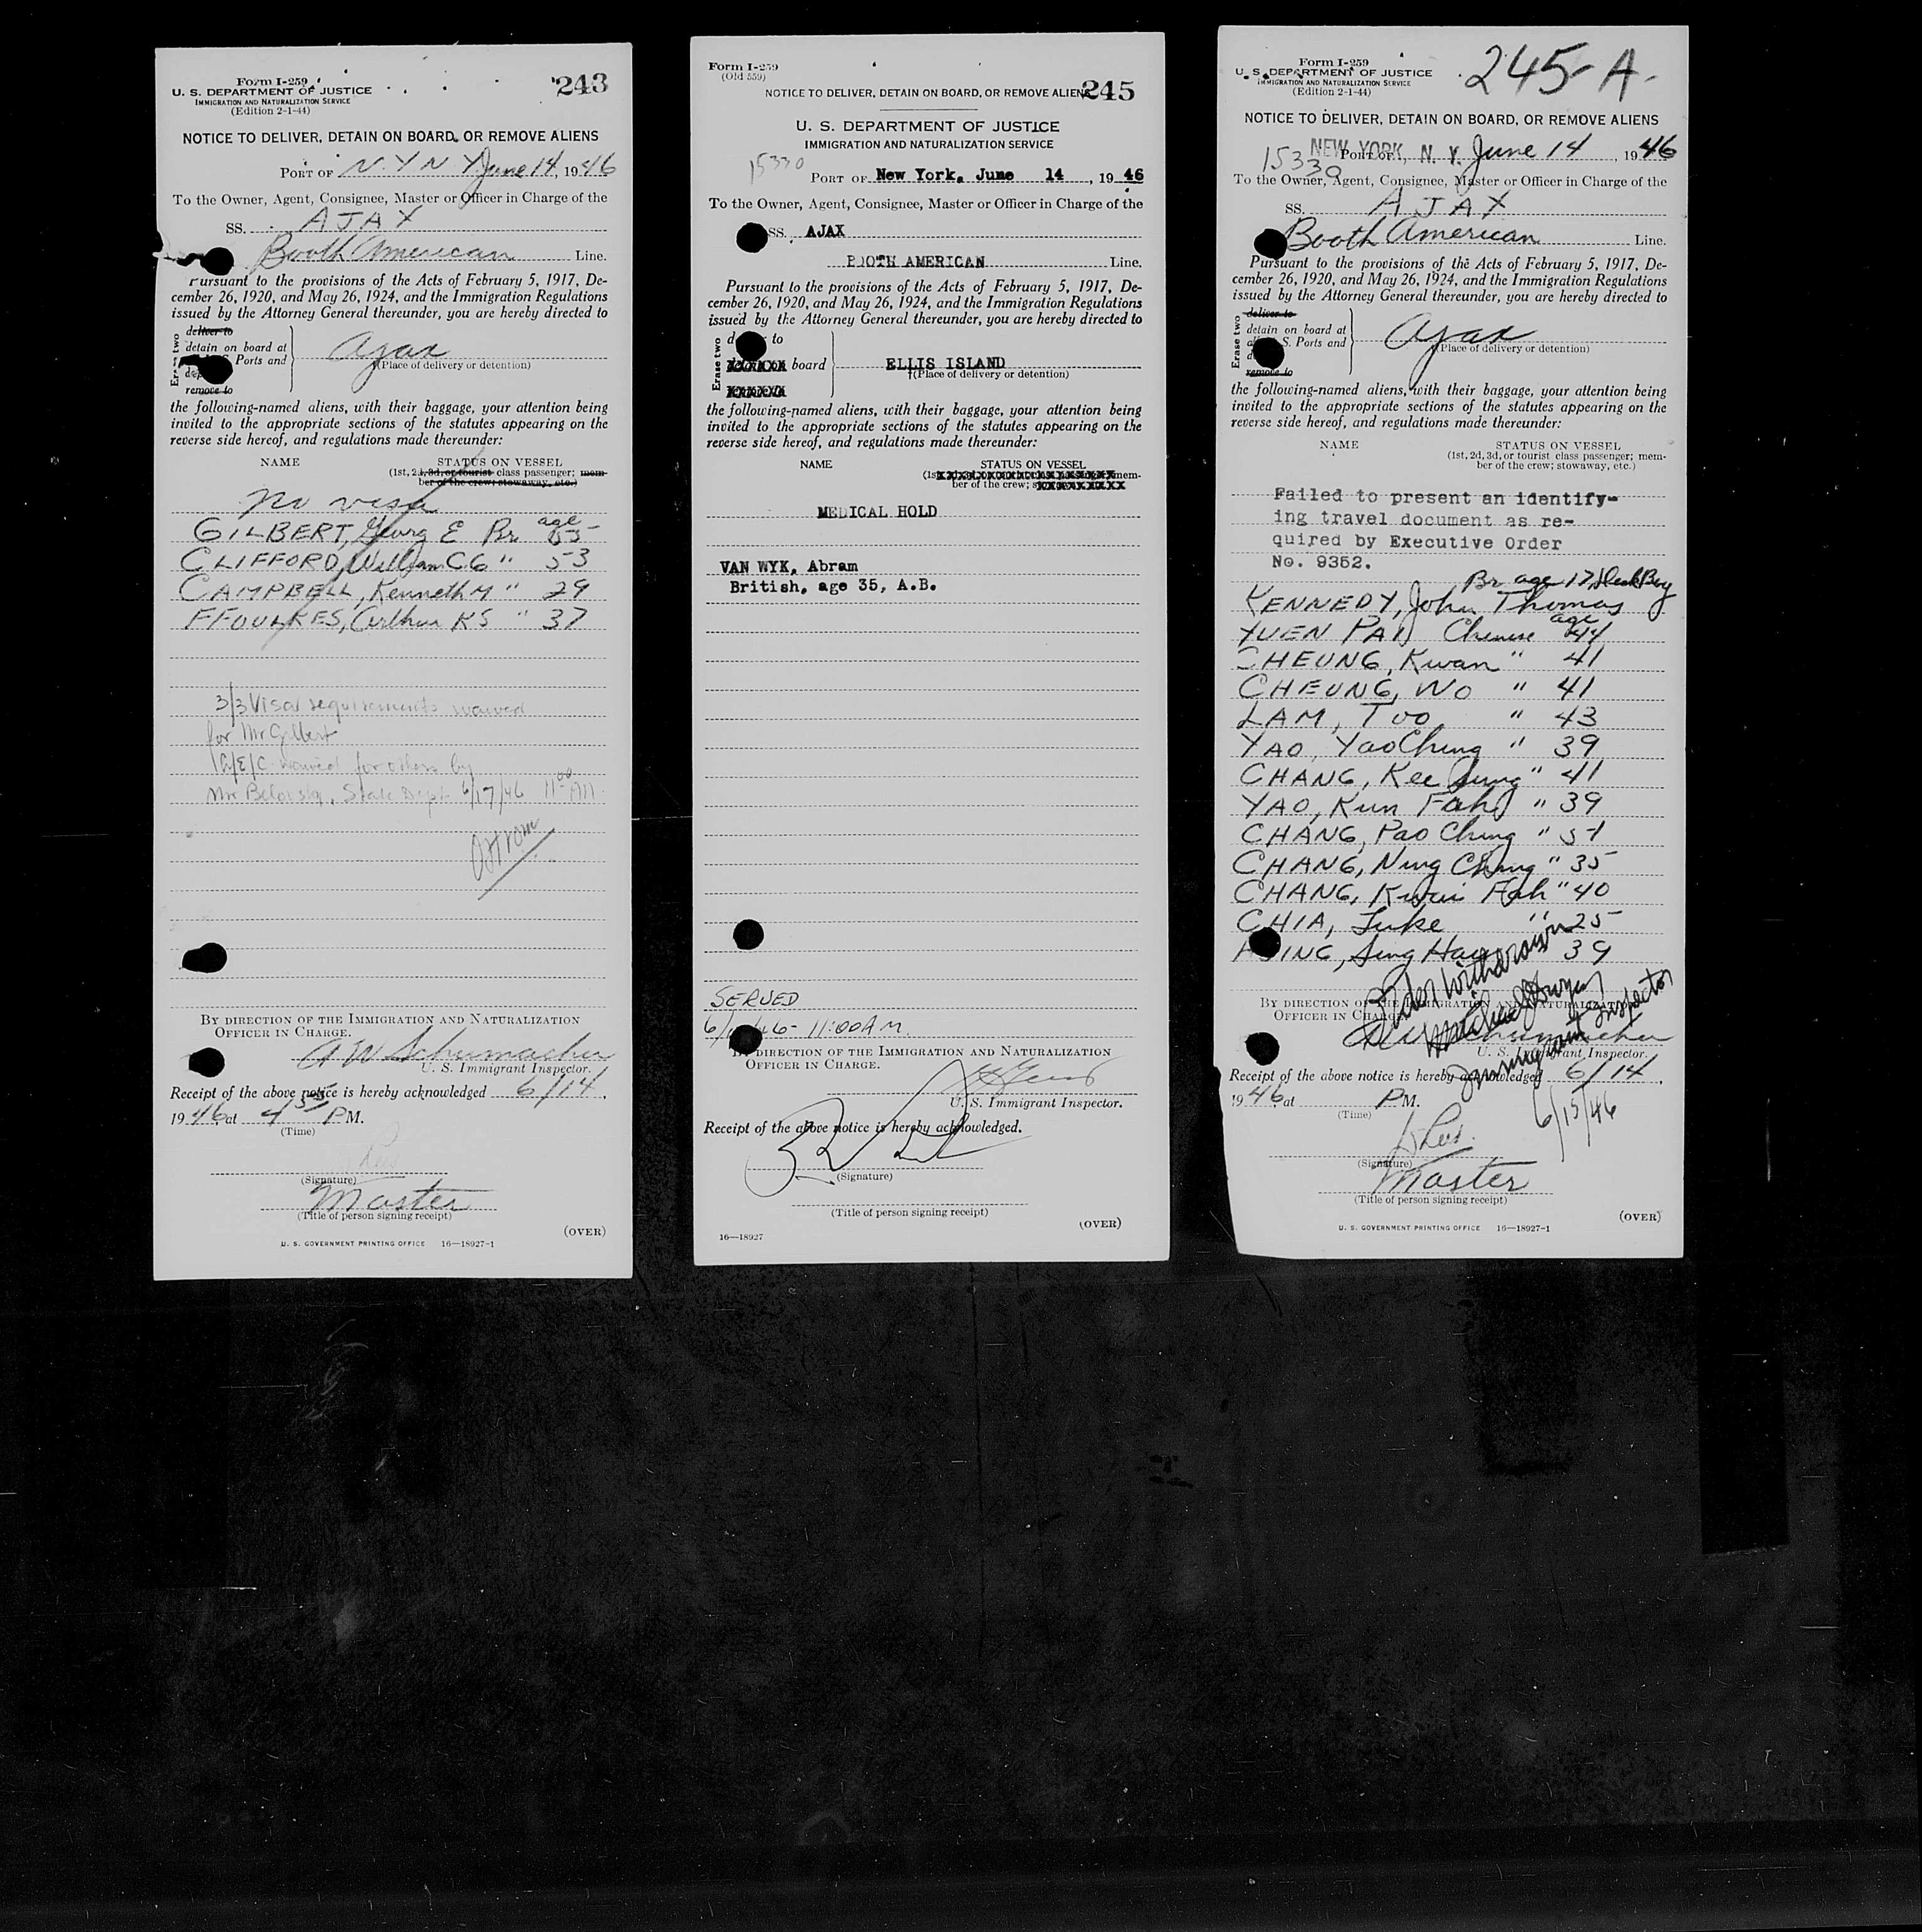 Form I-259
U. S. DEPARTMENT OF JUSTICE
IMMIGRATION AND NATURALIZATION SERVICE
(Edition 2-1-44)
243
NOTICE TO DELIVER, DETAIN ON BOARD, OR REMOVE ALIENS
PORT OF N. Y N Y June 14, 1946
To the Owner, Agent, Consignee, Master or Officer in Charge of the
SS. AJAX
Booth American Line.
Pursuant to the provisions of the Acts of February 5, 1917, De-
cember 26, 1920, and May 26, 1924, and the Immigration Regulations
issued by the Attorney General thereunder, you are hereby directed to
Erase two
deliver to
detain on board at
Ports and
Ajax
(Place of delivery or detention)
remove to
the following-named aliens, with their baggage, your attention being
invited to the appropriate sections of the statutes appearing on the
reverse side hereof, and regulations made thereunder:
NAME STATUS ON VESSEL
(1st, 2d, 3d, or tourist class passenger; mem-
ber of the crew; stowaway, etc.)
No visa
GILBERT, Georg E Br age 55
CLIFFORD, William C G " 53
CAMPBELL, Kenneth M " 29
FFOULKES, Arthur K S " 37
3/3 Visa requirements waived
for Mr Gilbert
waived for others by
Mr State Dept 6/17/46 11 00 AM
BY DIRECTION OF THE IMMIGRATION AND NATURALIZATION
OFFICER IN CHARGE.
A W Schumacher
U. S. Immigrant Inspector.
Receipt of the above notice is hereby acknowledged 6/14,
1946, at 4 35 PM.
(Time)
(Signature)
Master
(Title of person signing receipt)
(OVER)
U. S. GOVERNMENT PRINTING OFFICE 16—18927-1
Form I-259
(Old 559)
NOTICE TO DELIVER, DETAIN ON BOARD, OR REMOVE ALIENS
245
U. S. DEPARTMENT OF JUSTICE
IMMIGRATION AND NATURALIZATION SERVICE
15330
PORT OF New York, June 14, 1946
To the Owner, Agent, Consignee, Master or Officer in Charge of the
SS. AJAX
BOOTH AMERICAN Line.
Pursuant to the provisions of the Acts of February 5, 1917, De-
cember 26, 1920, and May 26, 1924, and the Immigration Regulations
issued by the Attorney General thereunder, you are hereby directed to
Erase two
to
board
ELLIS ISLAND
†(Place of delivery or detention)
the following-named aliens, with their baggage, your attention being
invited to the appropriate sections of the statutes appearing on the
reverse side hereof, and regulations made thereunder:
NAME STATUS ON VESSEL
(1st mem-
ber of the crew;
MEDICAL HOLD
VAN WYK, Abram
British, age 35, A.B.
SERVED
11:00 A M.
BY DIRECTION OF THE IMMIGRATION AND NATURALIZATION
OFFICER IN CHARGE.
U. S. Immigrant Inspector.
Receipt of the above notice is hereby acknowledged.
(Signature)
(Title of person signing receipt)
(OVER)
16—18927
Form I-259
U. S. DEPARTMENT OF JUSTICE
IMMIGRATION AND NATURALIZATION SERVICE
(Edition 2-1-44)
245-A-
NOTICE TO DELIVER, DETAIN ON BOARD, OR REMOVE ALIENS
15330
PORT OF NEW YORK, N. Y. June 14, 1946
To the Owner, Agent, Consignee, Master or Officer in Charge of the
SS. AJAX
Booth American Line.
Pursuant to the provisions of the Acts of February 5, 1917, De-
cember 26, 1920, and May 26, 1924, and the Immigration Regulations
issued by the Attorney General thereunder, you are hereby directed to
Erase two
deliver to
detain on board at
S. Ports and
Ajax
(Place of delivery or detention)
remove to
the following-named aliens, with their baggage, your attention being
invited to the appropriate sections of the statutes appearing on the
reverse side hereof, and regulations made thereunder:
NAME STATUS ON VESSEL
(1st, 2d, 3d, or tourist class passenger; mem-
ber of the crew; stowaway, etc.)
Failed to present an identify-
ing travel document as re-
quired by Executive Order
No. 9352.
Br age 17 Deck Boy
KENNEDY, John Thomas
YUEN PAI Chinese age 44
CHEUNG, Kwan " 41
CHEUNG, WO " 41
LAM, Too " 43
YAO, Yao Ching " 39
CHANG, Kee Sung " 41
YAO, Kun Fah " 39
CHANG, Pao Ching " 51
CHANG, Ning Ching " 35
CHANG, Kwai Fah " 40
CHIA, Juke " 25
HSING, Sing Hao 39
Order Withdrawn
Immigrant Inspector
6/15/46
BY DIRECTION OF THE IMMIGRATION AND NATURALIZATION
OFFICER IN CHARGE.
A W Schumacher
U. S. Immigrant Inspector.
Receipt of the above notice is hereby acknowledged 6/14,
1946, at PM.
(Time)
(Signature)
Master
(Title of person signing receipt)
(OVER)
U. S. GOVERNMENT PRINTING OFFICE 16—18927-1